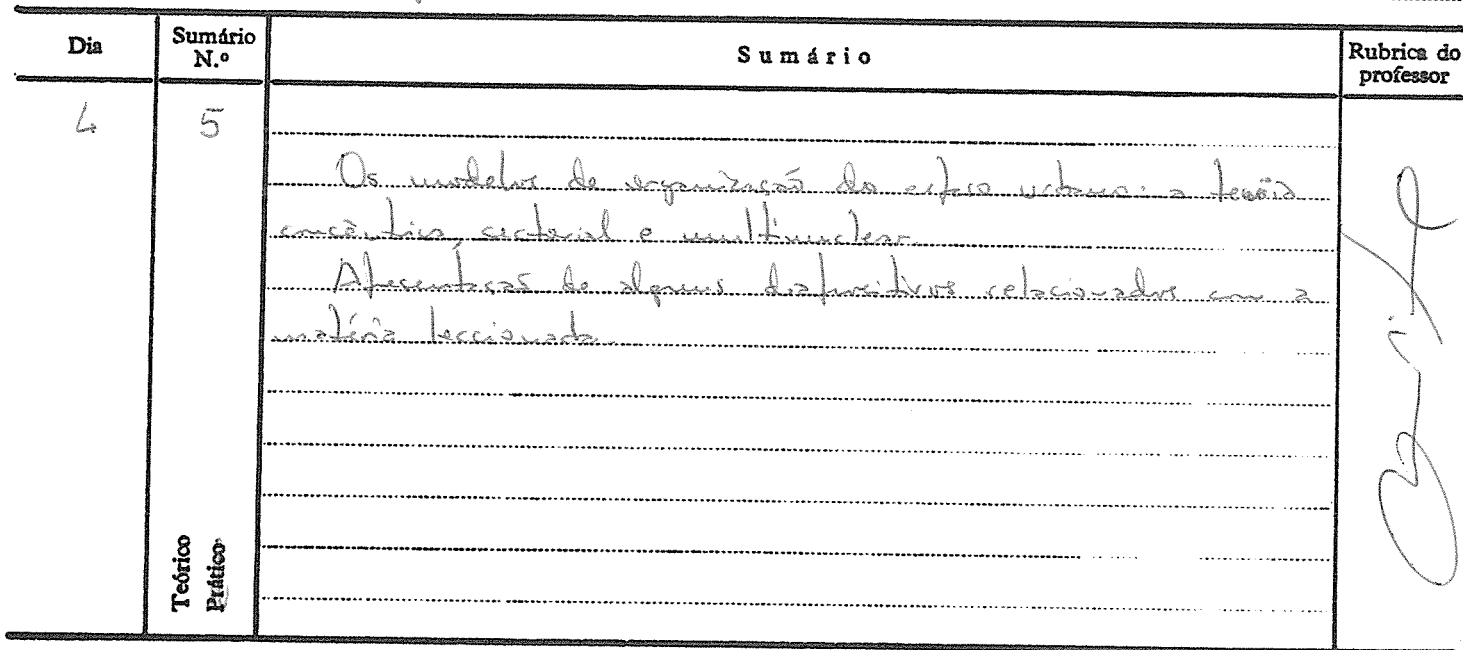 Dia
Sumário N.º
Sumário
Rubrica do professor
4
5
Os modelos de organização do espaço urbano: a teoria
concêntrica, sectorial e multinuclear.
Apresentação de alguns diapositivos relacionados com a
matéria leccionada.
Teórico
Prático